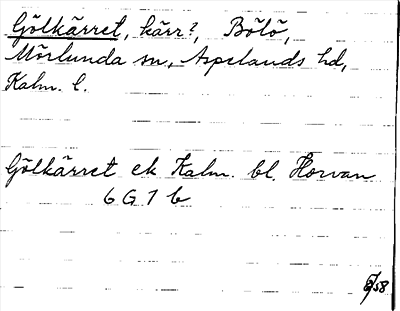 Gölkärret, kärr?, Bölö,
Mörlunda sn., Aspelands hd,
Kalm. l.
Gölkärret ek Kalm. bl. Horvan
6 G 7 b
8/58